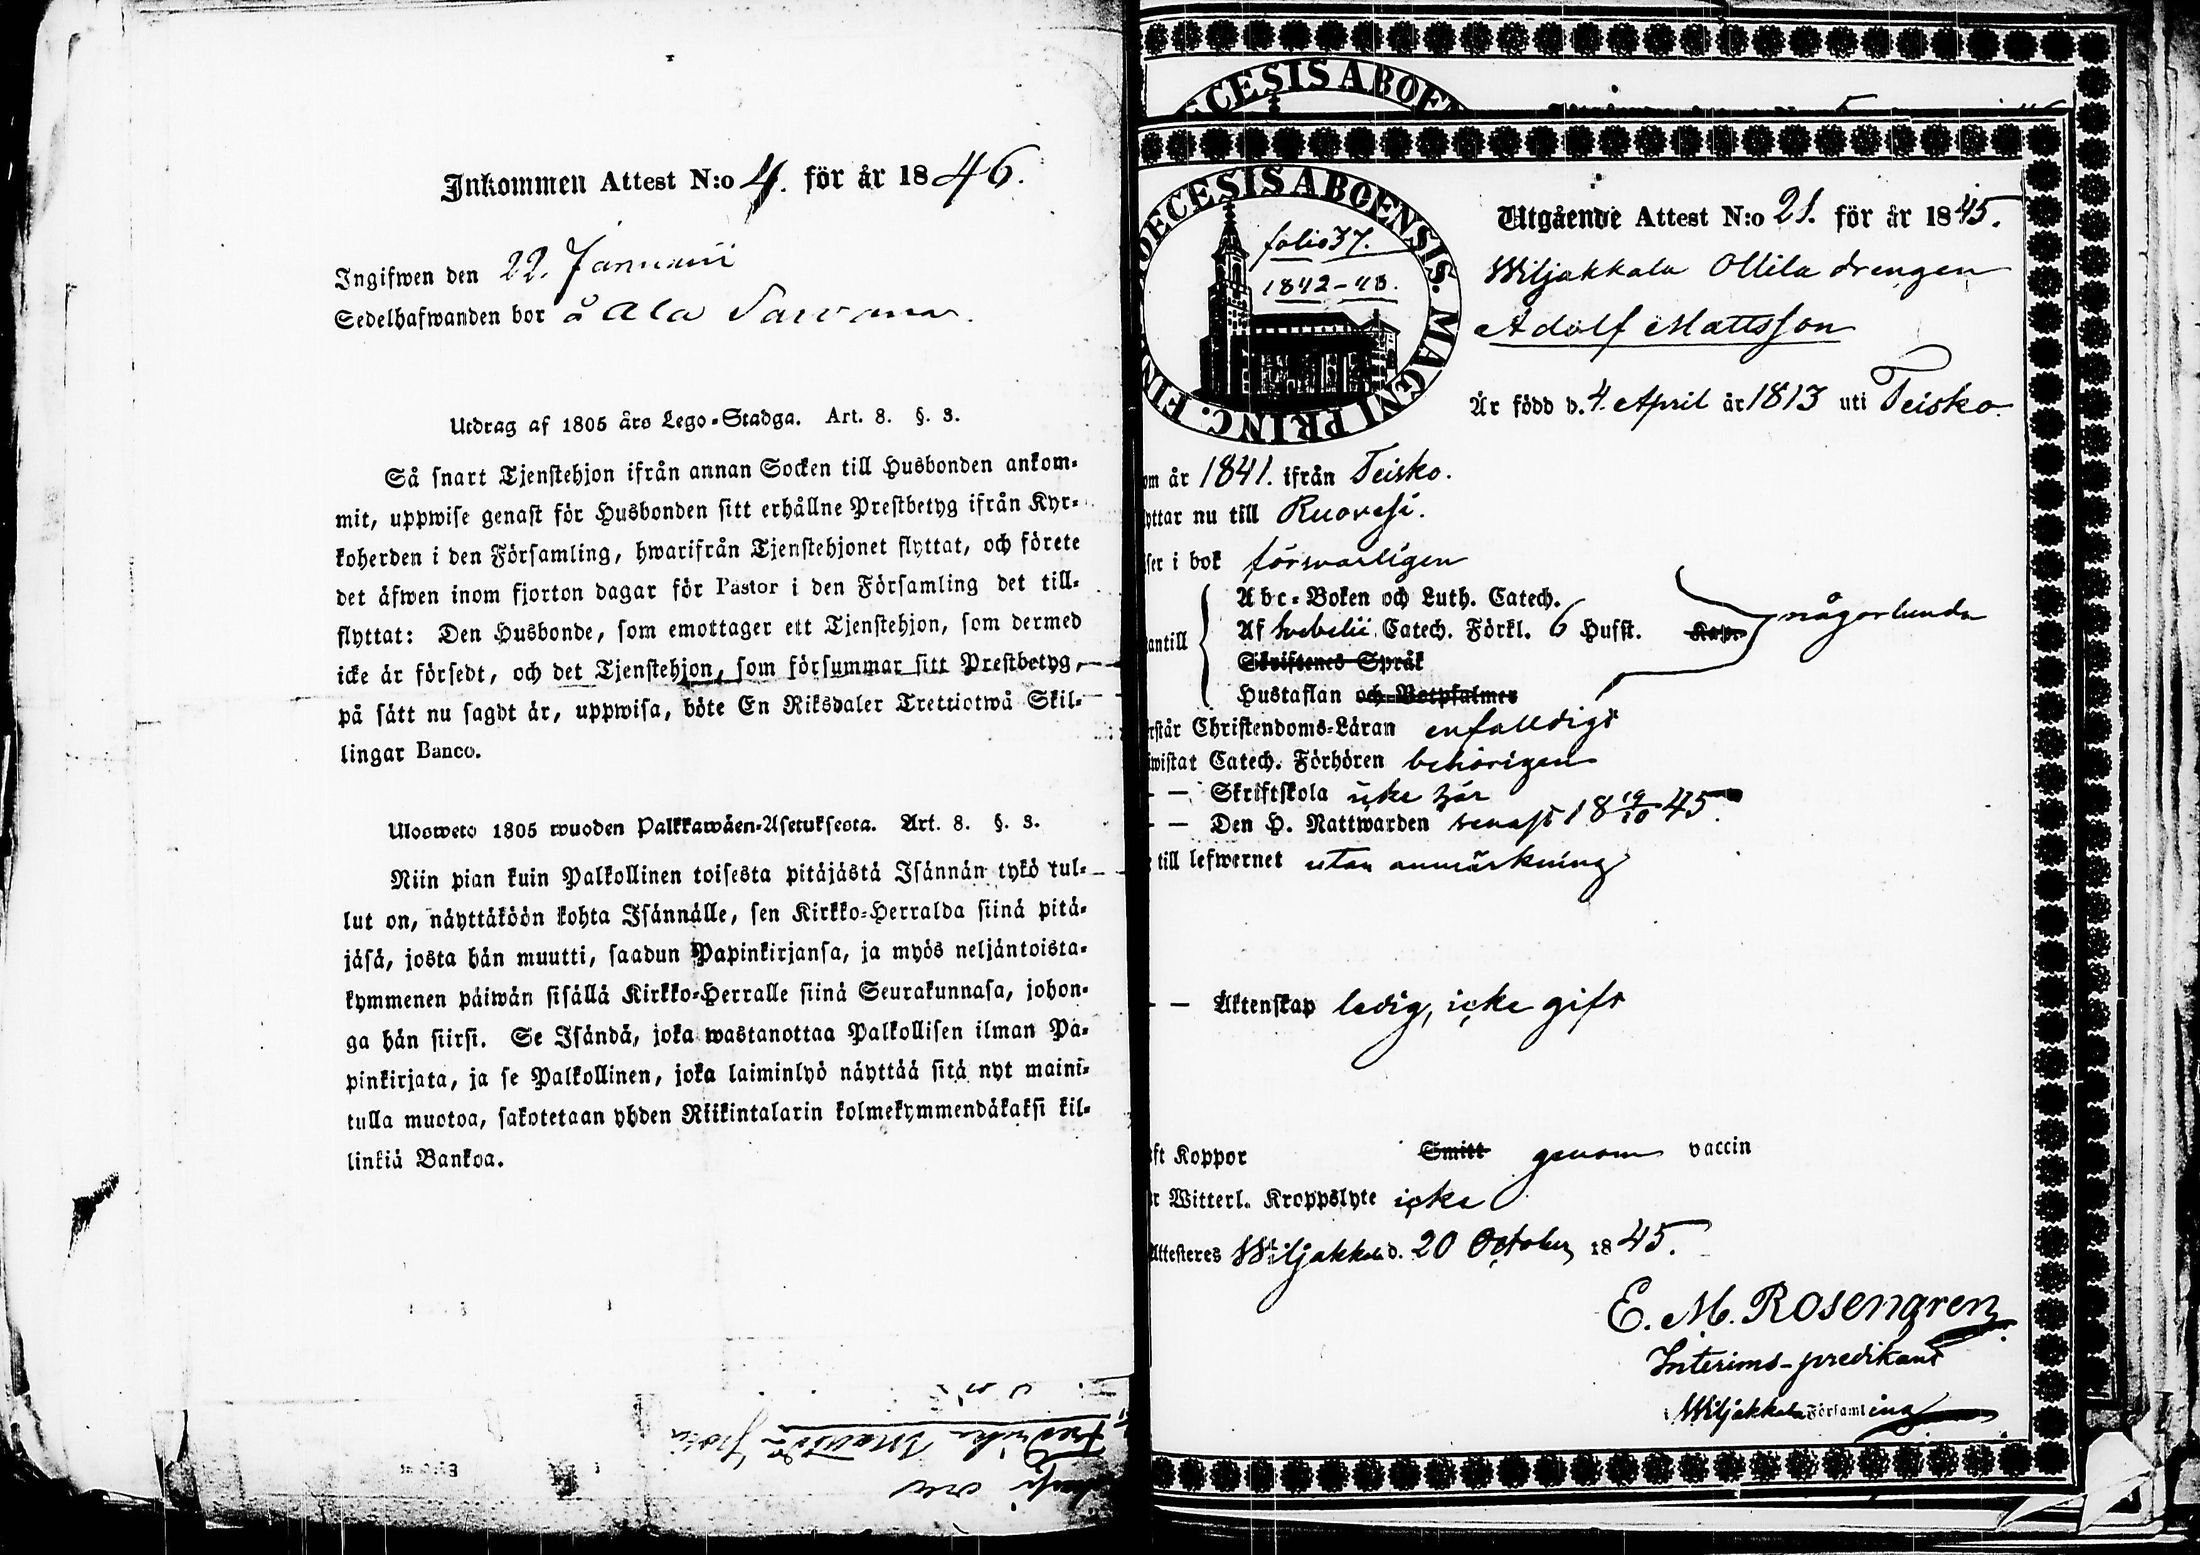 Inkommen Attest N:o 4. för år 1846.
Ingifwen den 22. Januarii
Sedelhafwanden bor å Ala
Utdrag af 1805 års Lego-Stadga. Art. 8. §. 3.
Så snart Tjenstehjon ifrån annan Socken till Husbonden ankom-
mit, uppwise genast för Husbonden sitt erhållne Prestbetyg ifrån Kyr-
koherden i den Församling, hwarifrån Tjenstehjonet flyttat, och förete
det äfwen inom fjorton dagar för Pastor i den Församling det till-
flyttat: Den Husbonde, som emottager ett Tjenstehjon, som dermed
icke är försedt, och det Tjenstehjon, som försummar sitt Prestbetyg,
på sätt nu sagdt är, uppwisa, böte En Riksdaler Trettiotwå Skil-
lingar Banco.
Ulosweto 1805 wuoden Palkkawäen-Asetuksesta. Art. 8. §. 3.
Niin pian kuin Palkollinen toisesta pitäjästä Isännän tykö tul-
lut on, näyttäköön kohta Isännälle, sen Kirkko-Herralda siinä pitä-
jäsä, josta hän muutti, saadun Papinkirjansa, ja myös neljäntoista-
kymmenen päiwän sisällä Kirkko-Herralle siinä Seurakunnasa, johon-
ga hän siirsi. Se Isändä, joka wastanottaa Palkollisen ilman Pa-
pinkirjata, ja se Palkollinen, joka laiminlyö näyttää sitä nyt maini-
tulla muotoa, sakotetaan yhden Riikintalarin kolmekymmendäkaksi kil-
linkiä Bankoa.
DIOECESIS ABOENSIS. MAGNI PRINC. FIN
folio 37.
1842-48.
Utgående Attest N:o 21. för år 1845.
Wiljakkala Ollila drengen
Adolf Mattsson
Är född d. 4. April år 1813 uti Teisko.
om år 1841. ifrån Teisko.
yttar nu till Ruovesi.
ser i bok försvarligen
Abc-Boken och Luth. Catech.
antill Af Svebelii Catech. Förkl. 6 Husst. Kap. någorlunda
Skriftenes Språk
Hustaflan och Botpsalmer
rstår Christendoms-Läran enfalldigt
wistat Catech. Förhören behörigen
— — Skriftskola icke här
— — Den H. Nattwarden senast 18 19/10 45.
till lefwernet utan anmärkning
— — Äktenskap ledig, icke gift
ft Koppor Smitt genom vaccin
r Witterl. Kroppslyte icke
Attesteres Wiljakkala d. 20 October 1845.
E. M. Rosengren
Interims-predikant
i Wiljakkala Församling